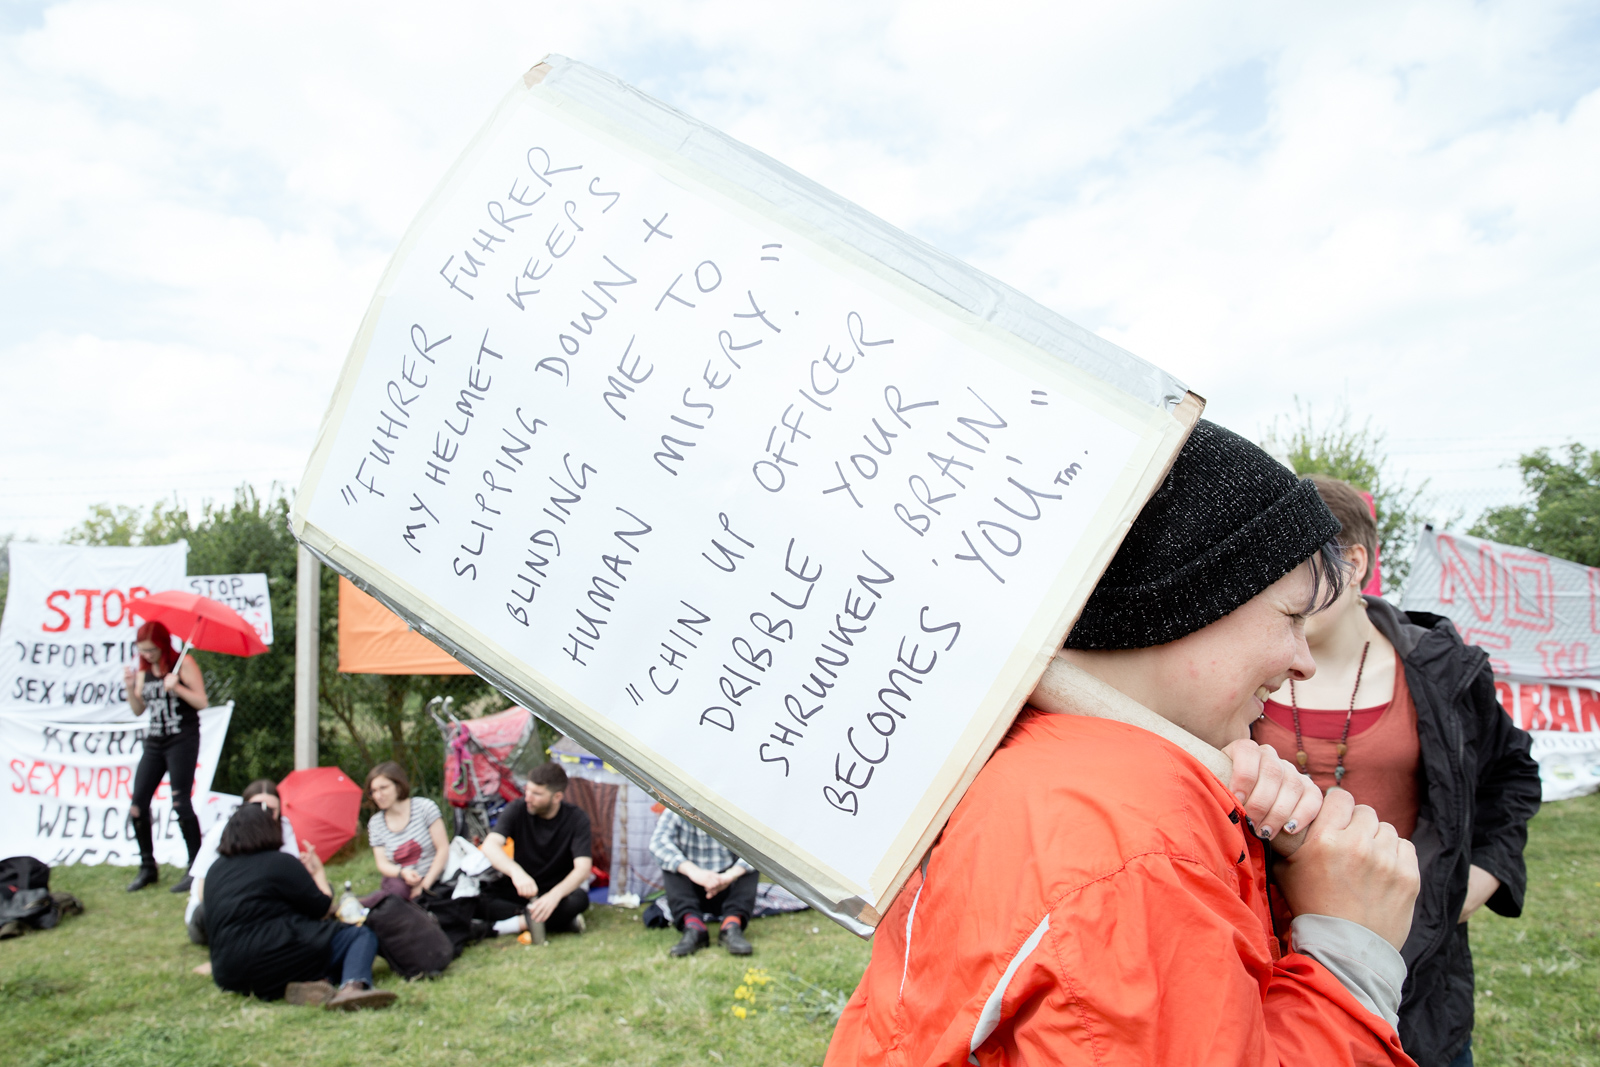 "FUHRER FUHRER
MY HELMET KEEPS
SLIPPING DOWN +
BLINDING ME TO
HUMAN MISERY."
"CHIN UP OFFICER
DRIBBLE YOUR
SHRUNKEN BRAIN
BECOMES YOU,"
TM.
STOP
DEPORTI
SEX WORKE
SEX WOR
WELCOME
STOP
NO